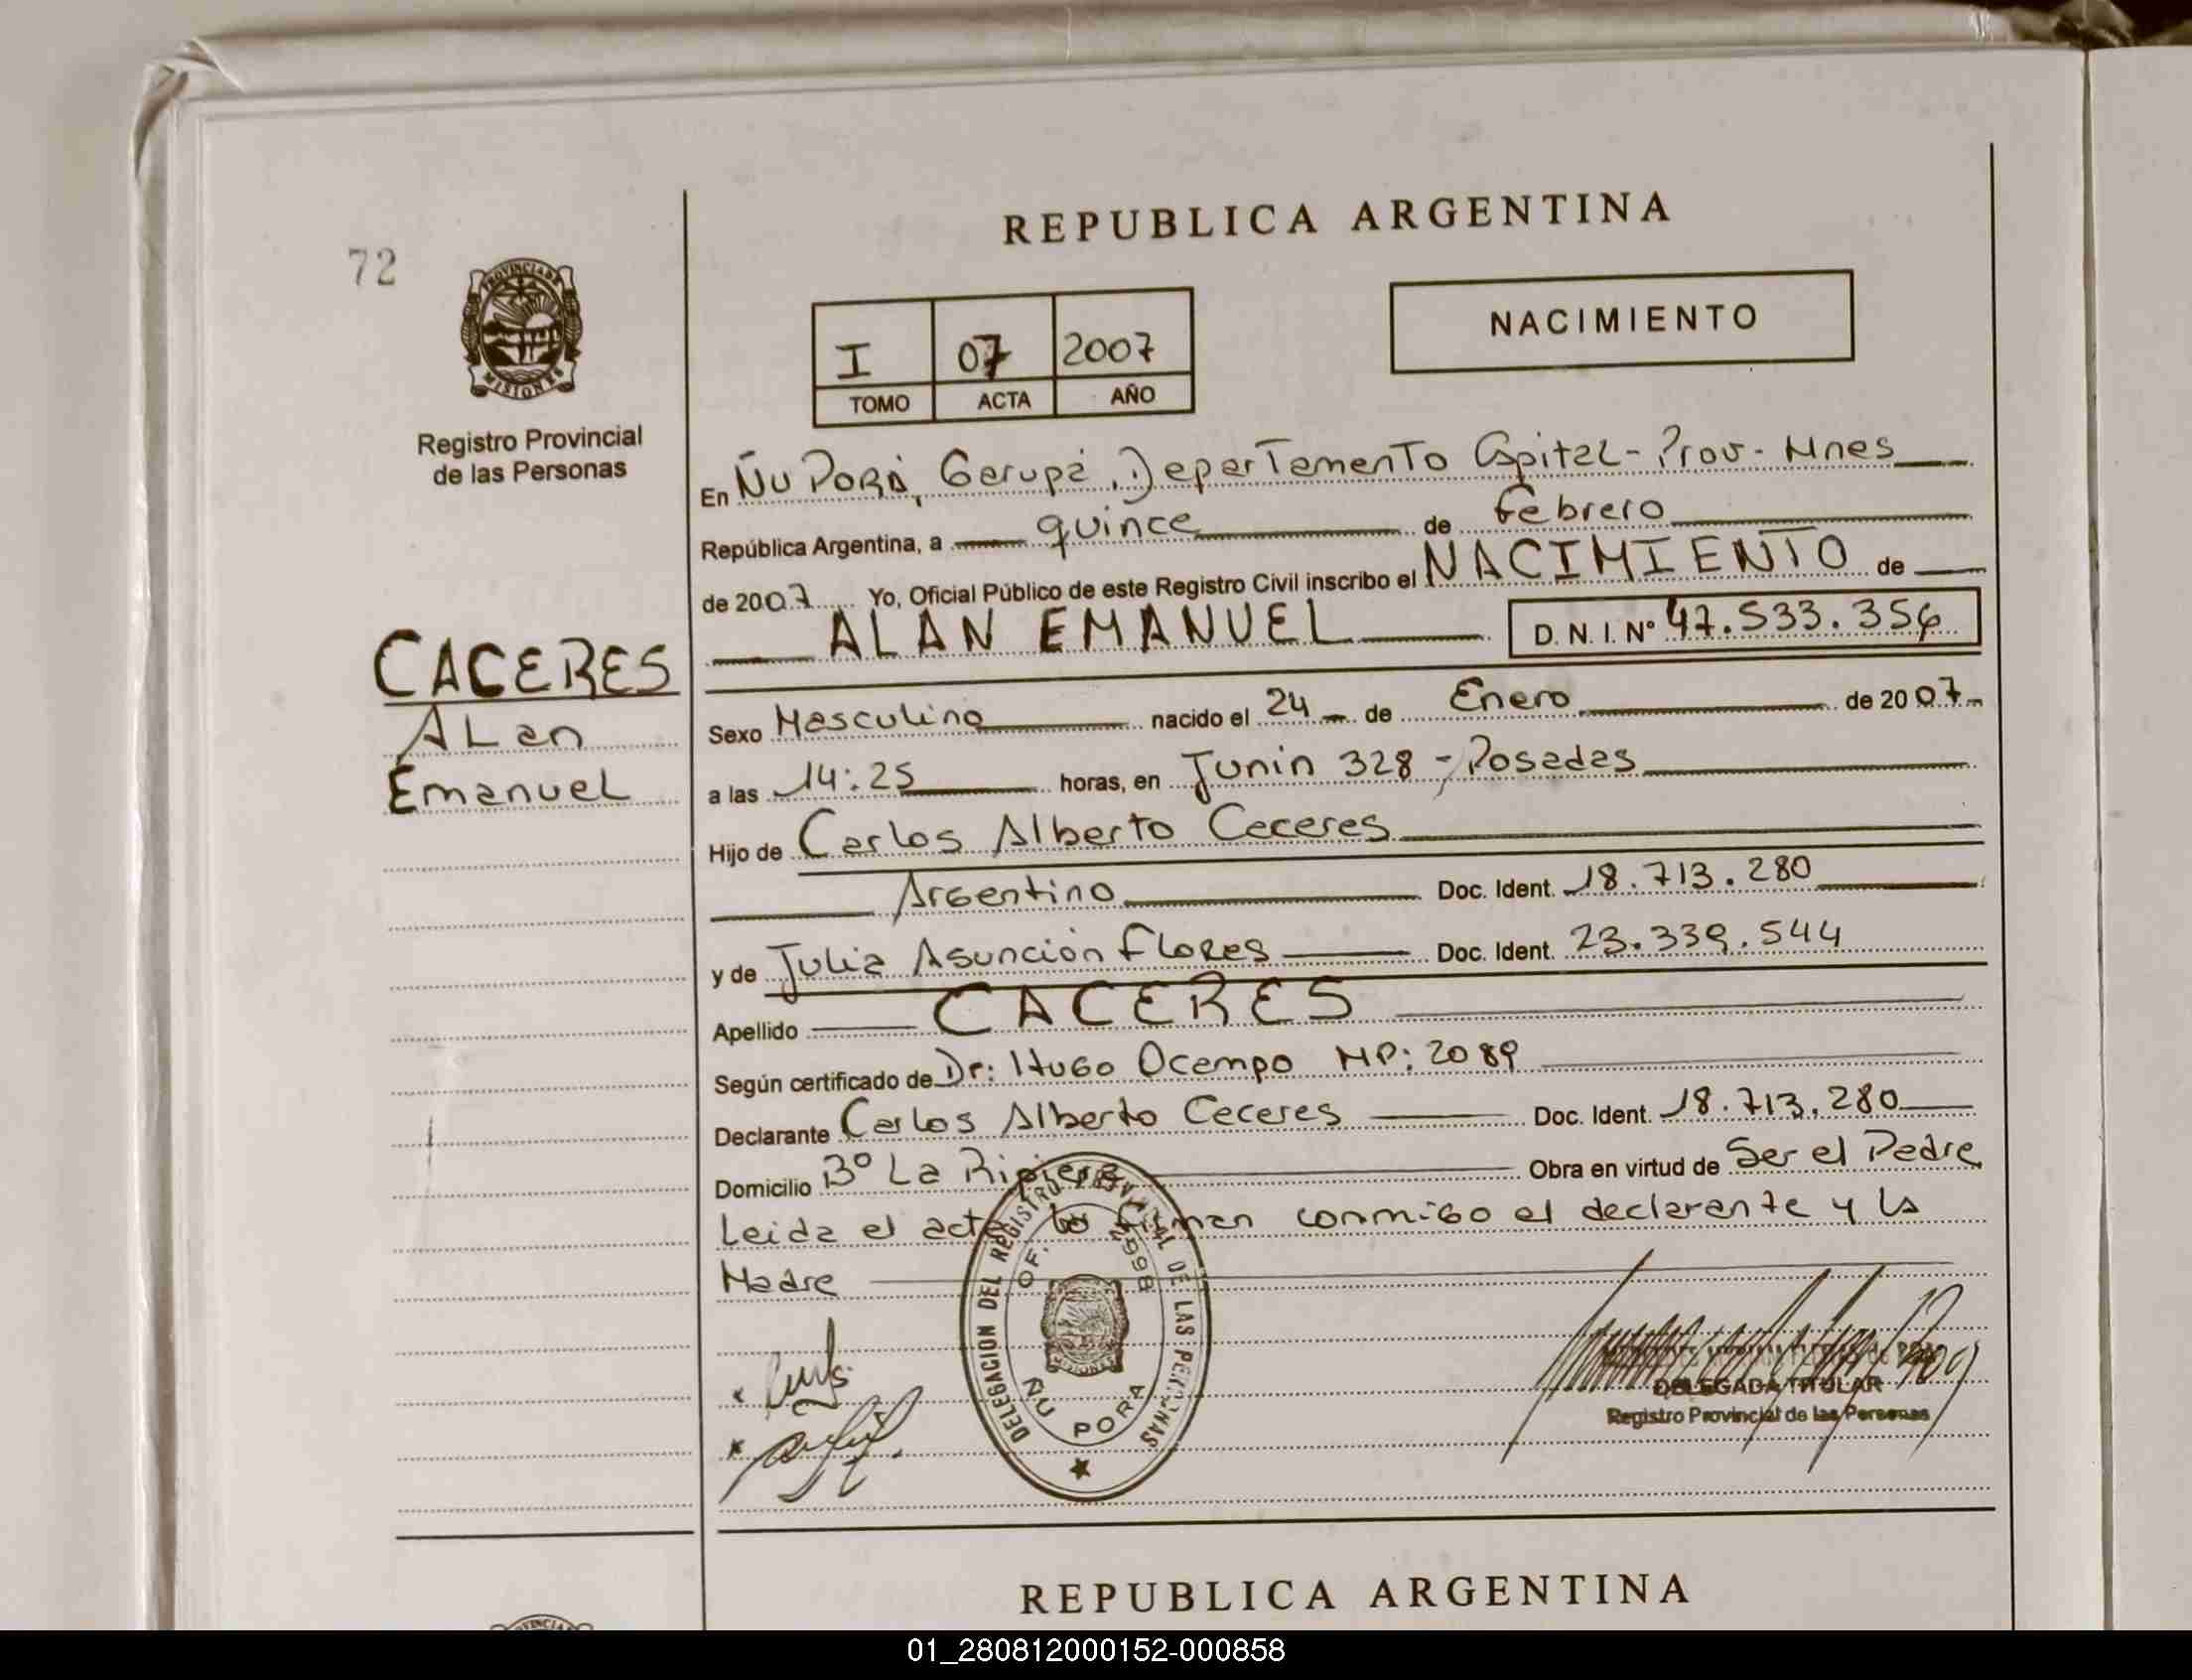 REPUBLICA ARGENTINA
72
PROVINCIA DE
MISIONES
Registro Provincial
de las Personas
I 07 2007
TOMO ACTA AÑO
NACIMIENTO
En Ñu Porá, Garupá, Departamento Capital - Prov - Mnes
República Argentina, a quince de Febrero
de 2007 Yo, Oficial Público de este Registro Civil inscribo el NACIMIENTO de
ALAN EMANUEL D. N. I. Nº 47.533.356
CACERES
Alan
Emanuel
Sexo Masculino nacido el 24 de Enero de 2007
a las 14:25 horas, en Junin 328 - Posadas
Hijo de Carlos Alberto Caceres
Argentino Doc. Ident. 18.713.280
y de Julia Asunción Flores Doc. Ident. 23.339.544
Apellido CACERES
Según certificado de Dr: Hugo Ocampo MP: 2089
Declarante Carlos Alberto Caceres Doc. Ident. 18.713.280
Domicilio Bº La Ripiera Obra en virtud de Ser el Padre
Leida el acta la firman conmigo el declarante y la
Madre
DELEGACION DEL REGISTRO PROVINCIAL DE LAS PERSONAS
OF. 2998
MISIONES
ÑU PORA
DELEGADA TITULAR
Registro Provincial de las Personas
REPUBLICA ARGENTINA
01_280812000152-000858